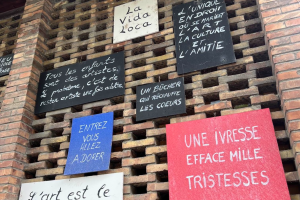 La
Vida
Loca
L'UNIQUE
ENDROIT
OÙ SE MARIENT
L'ART
LA CULTURE
ET
L'AMITIE
Tous les enfants
sont des artistes
le problème, c'est de
rester artiste une fois adulte
UN BÛCHER
QUI RÉCHAUFFE
LES COEURS
ENTREZ
VOUS
ALLEZ
ADORER
UNE IVRESSE
EFFACE MILLE
TRISTESSES
L'ART est le